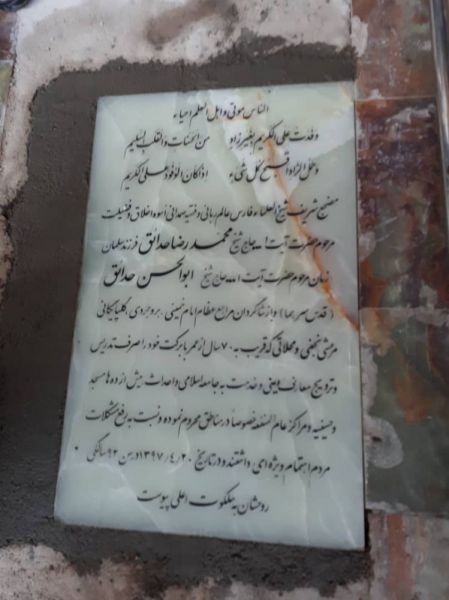 الناس موتی و اهل العلم احیاء
وفدت علی الکریم بغیر زاد من الحسنات والقلب السلیم
وحمل الزاد اقبح کل شیء اذا کان الوفود علی الکریم
مضجع شریف شیخ العلماء فارس عالم ربانی و فقیه صمدانی اسوه اخلاق و فضیلت
مرحوم حضرت آیت ا... حاج شیخ محمد رضا حدائق فرزند سلمان
زمان مرحوم حضرت آیت ا... حاج شیخ ابوالحسن حدائق
(قدس سرهما) و از شاگردان مراجع عظام امام خمینی، بروجردی، گلپایگانی
مرعشی نجفی و محلاتی که قریب به ۷۰ سال از عمر با برکت خود را صرف تدریس
و ترویج معارف دینی و خدمت به جامعه اسلامی و احداث بیش از ده ها مسجد
و حسینیه و مراکز عام المنفعه خصوصاً در مناطق محروم نموده و نسبت به رفع مشکلات
مردم اهتمام ویژه ای داشتند و در تاریخ ۱۳۹۷/۴/۲۰ در سن ۹۲ سالگی
روحشان به ملکوت اعلی پیوست